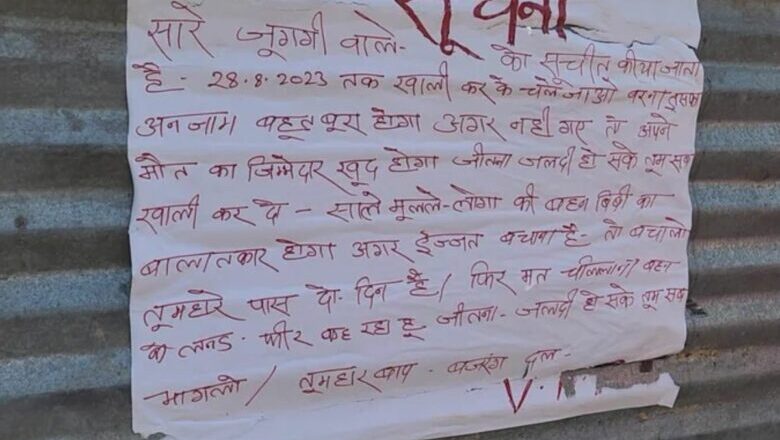 सूचना
सारे जूगगी वाले- को सूचीत कीया जाता
है- 28.8.2023 तक खाली कर के चले जाओ वरना इसका
अनजाम बहूत बूरा होगा अगर नही गए तो अपने
मौत का जिम्मेदार खूद होगा जीतना जलदी हो सके तूम सब
खाली कर दे - साले मूलले-लोगो की बहन बिबी का
बालातकार होगा अगर ईज्जत बचाना है- तो बचालो
तूमहारे पास दो-दिन है/ फिर मत चीललाना बहन
के लनड- फीर कह रहा हू जीतना-जलदी हो सके तूम सब
भागलो / तूमहार बाप- बजरंग दल-
V.